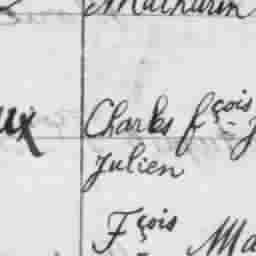 Mathurin
ux Charles fçois J
Julien
Fçois Ma